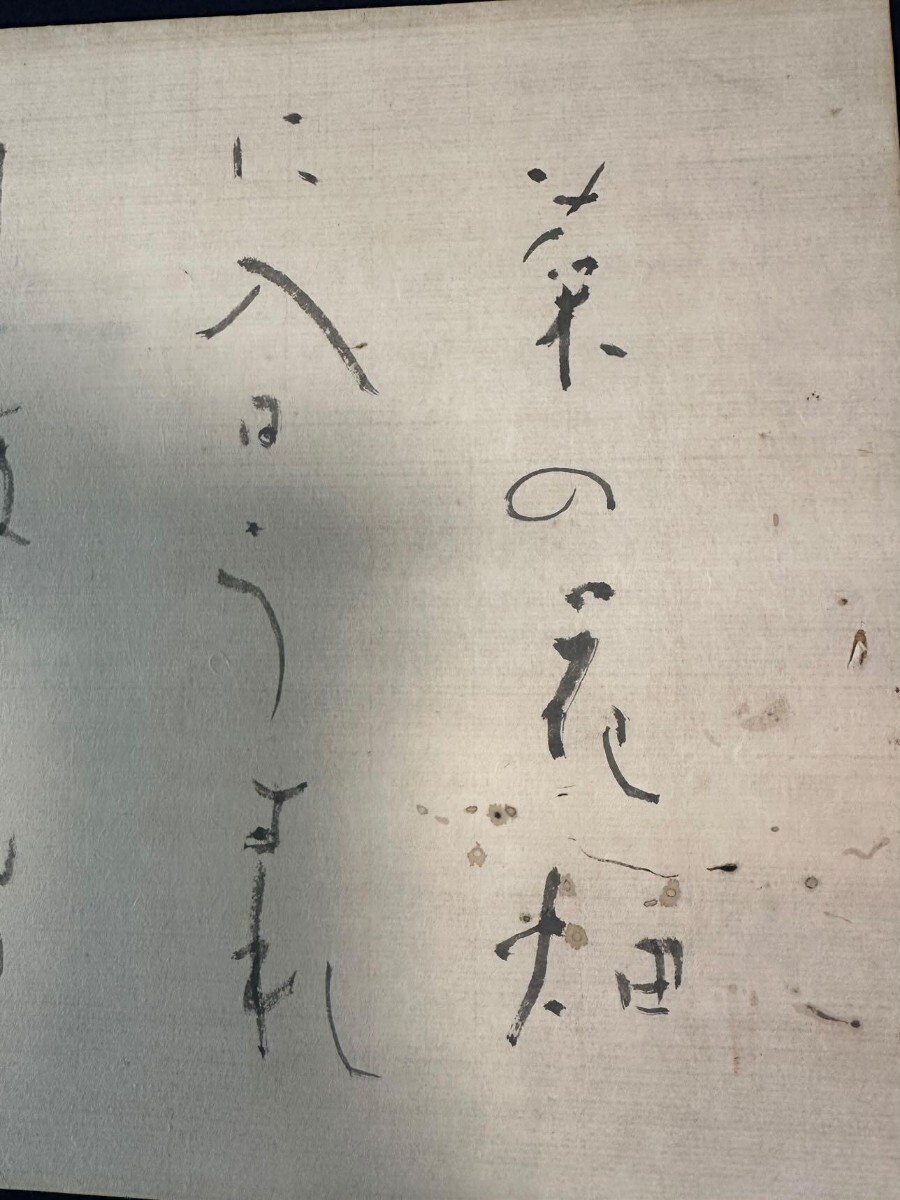 菜の花畑
に入日うすれ